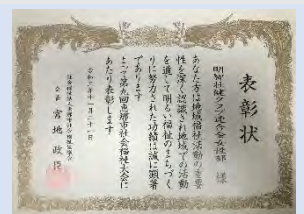 表彰状
明智壮健クラブ連合会女性部 様
あなた方は地域福祉活動の重要
性を深く認識され地域での活動
を通して明るい福祉のまちづく
りに努力された功績は誠に顕著
であります
よって第九回恵那市社会福祉大会に
あたり表彰します
令和 年十一月二十一日
社会福祉法人恵那市社会福祉協議会
会長 宮地政臣